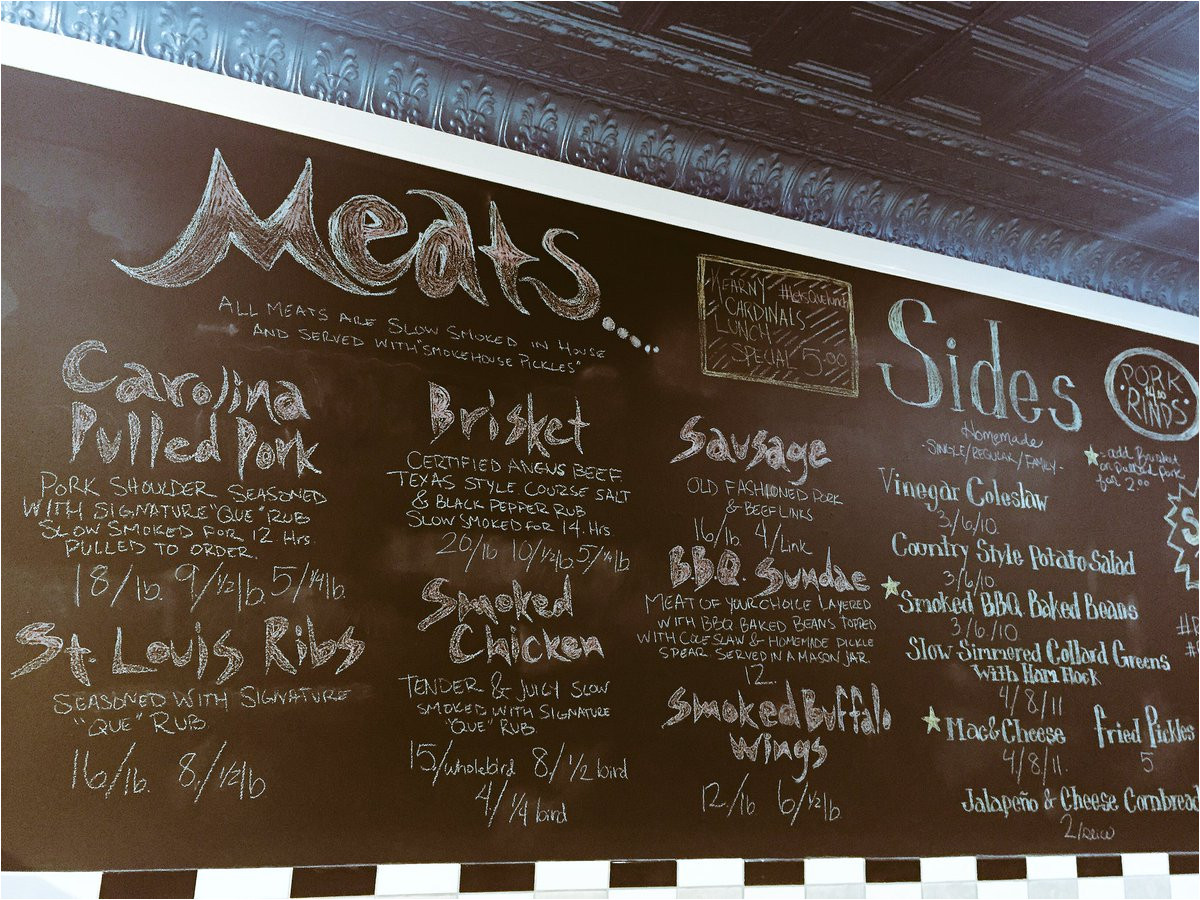 Meats....
ALL MEATS ARE SLOW SMOKED IN HOUSE
AND SERVED WITH "SMOKEHOUSE PICKLES"
Carolina
Pulled Pork
PORK SHOULDER SEASONED
WITH SIGNATURE "QUE" RUB
SLOW SMOKED FOR 12 Hrs.
PULLED TO ORDER.
18/lb. 9/½lb. 5/¼lb.
St. Louis Ribs
SEASONED WITH SIGNATURE
"QUE" RUB
16/lb. 8/½lb
Brisket
CERTIFIED ANGUS BEEF
TEXAS STYLE COURSE SALT
& BLACK PEPPER RUB
SLOW SMOKED FOR 14 Hrs
20/lb 10/½lb. 5/¼lb.
Smoked
Chicken
TENDER & JUICY SLOW
SMOKED WITH SIGNATURE
"QUE" RUB.
15/wholebird 8/½ bird
4/¼ bird
KEARNY
CARDINALS
LUNCH
SPECIAL 5.00
Sausage
OLD FASHIONED PORK
& BEEF LINKS
16/lb. 4/Link
BBQ. Sundae
MEAT OF YOUR CHOICE LAYERED
WITH BBQ BAKED BEANS TOPPED
WITH COLESLAW & HOMEMADE PICKLE
SPEAR. SERVED IN A MASON JAR.
12.
Smoked Buffalo
Wings
12/lb 6/½lb.
Sides
Homemade
-SINGLE/REGULAR/FAMILY-
Vinegar Coleslaw
3/6/10.
Country Style Potato Salad
3/6/10.
Smoked BBQ Baked Beans
3/6/10
Slow Simmered Collard Greens
With Ham Hock
4/8/11
Mac&Cheese
4/8/11.
Fried Pickles
5
Jalapeño & Cheese Cornbread
PORK
RINDS
add Brisket
or Pulled Pork
for 2.00